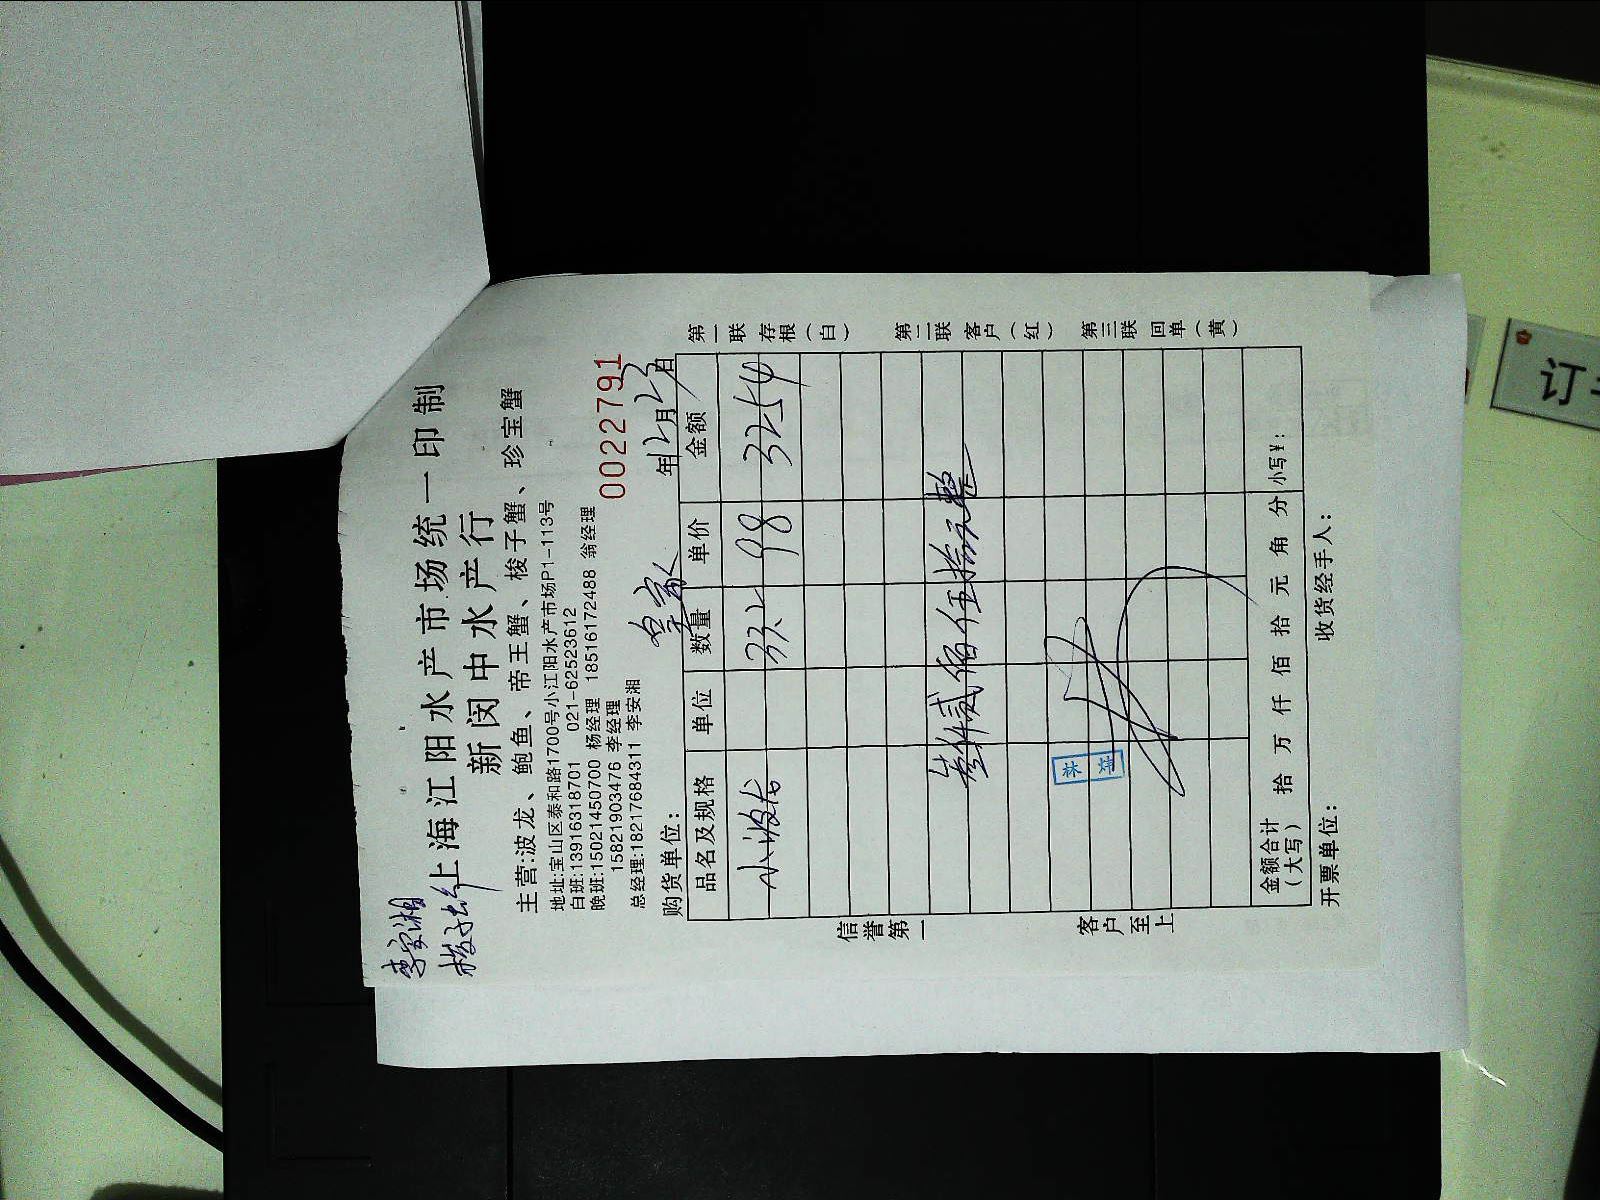 李安湘
梭子蟹
上海江阳水产市场统一印制
新闵中水产行
主营:波龙、鲍鱼、帝王蟹、梭子蟹、珍宝蟹
地址:宝山区泰和路1700号小江阳水产市场P1-113号
白班:13916318701 021-62523612
晚班:15021450700 杨经理 18516172488 翁经理
15821903476 李经理
总经理:18217684311 李安湘
0022791
购货单位: 皇家 年12月23日
品名及规格 单位 数量 单价 金额
小波龙 33.2 98 3254
叁仟贰佰伍拾元整
金额合计(大写) 拾 万 仟 佰 拾 元 角 分 小写¥:
开票单位: 收货经手人:
信誉第一
客户至上
第一联 存根(白)
第二联 客户(红)
第三联 回单(黄)
订